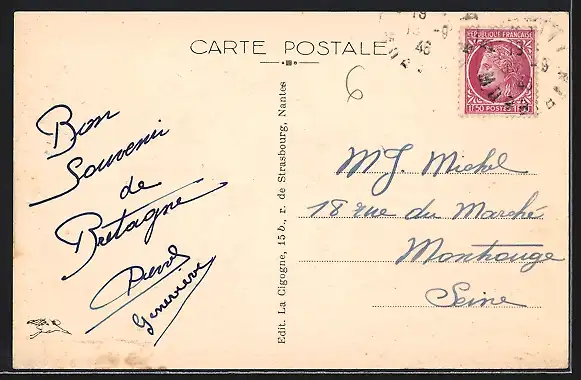 CARTE POSTALE
REPUBLIQUE FRANÇAISE
1F50 POSTES 1F50
19
13 -9
46
13 -9
6
Bon
Souvenir
de
Bretagne
Pierre
Geneviève
Edit. La Cigogne, 15 b., r. de Strasbourg, Nantes
MJ. Michel
18 rue du Marché
Montrouge
Seine